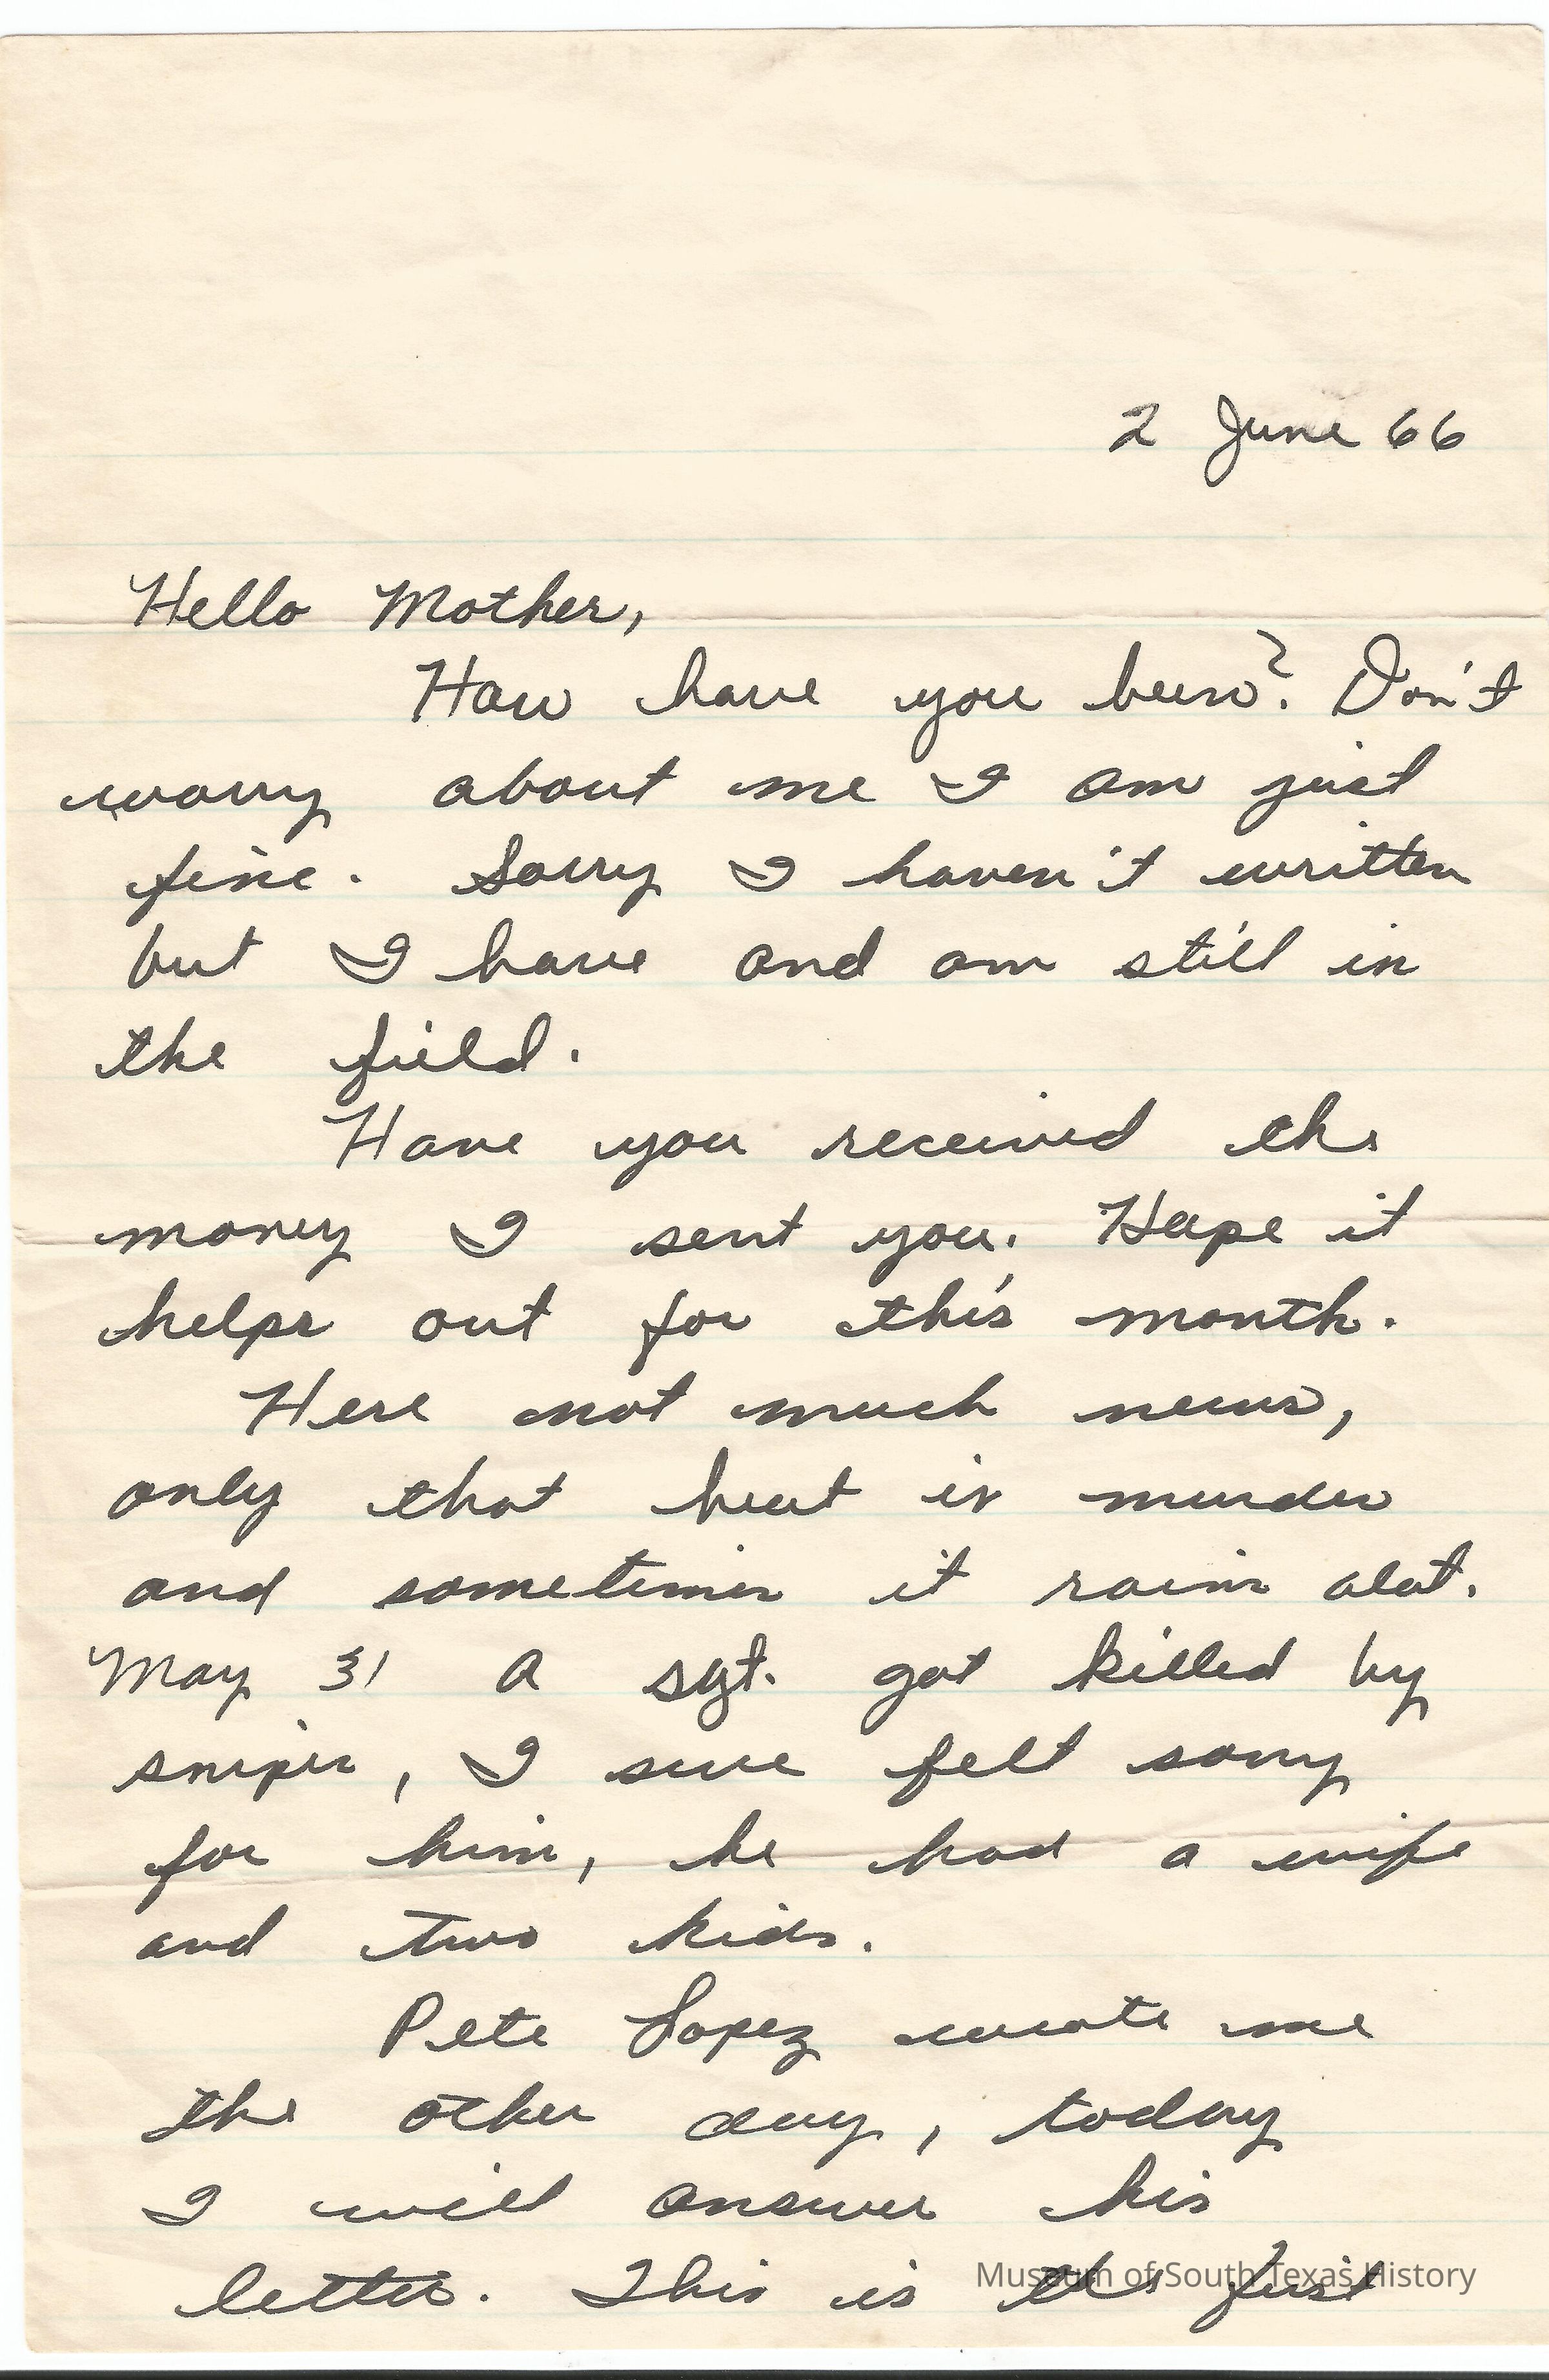 2 June 66
Hello Mother,
How have you been? Don't
worry about me I am just
fine. Sorry I haven't written
but I have and am still in
the field.
Have you received the
money I sent you. Hope it
helps out for this month.
Here not much news,
only that heat is murder
and sometimes it rains alot.
May 31 a sgt. got killed by
sniper, I sure felt sorry
for him, he had a wife
and two kids.
Pete Lopez wrote me
the other day, today
I will answer his
letter. This is the first
Museum of South Texas History